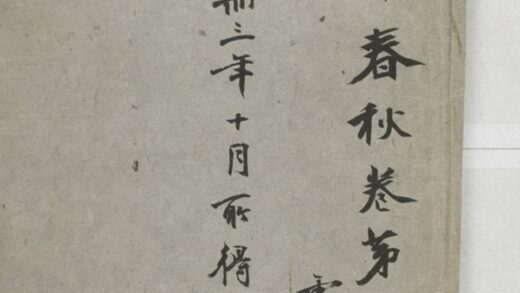 春秋卷第
卌三年十月所得